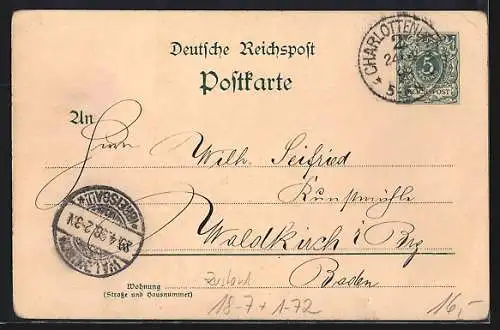 Deutsche Reichspost
Postkarte
CHARLOTTEN
2
5
5
REICHSPOST
An
Herrn
Wilh. Seifried
Kunstmühle
Waldkirch i Brg
Baden
(BREISGAU)
4.98.2-3N
WALDKIRCH
Wohnung
(Straße und Hausnummer)
Zustand
18-7+1-72
16,-